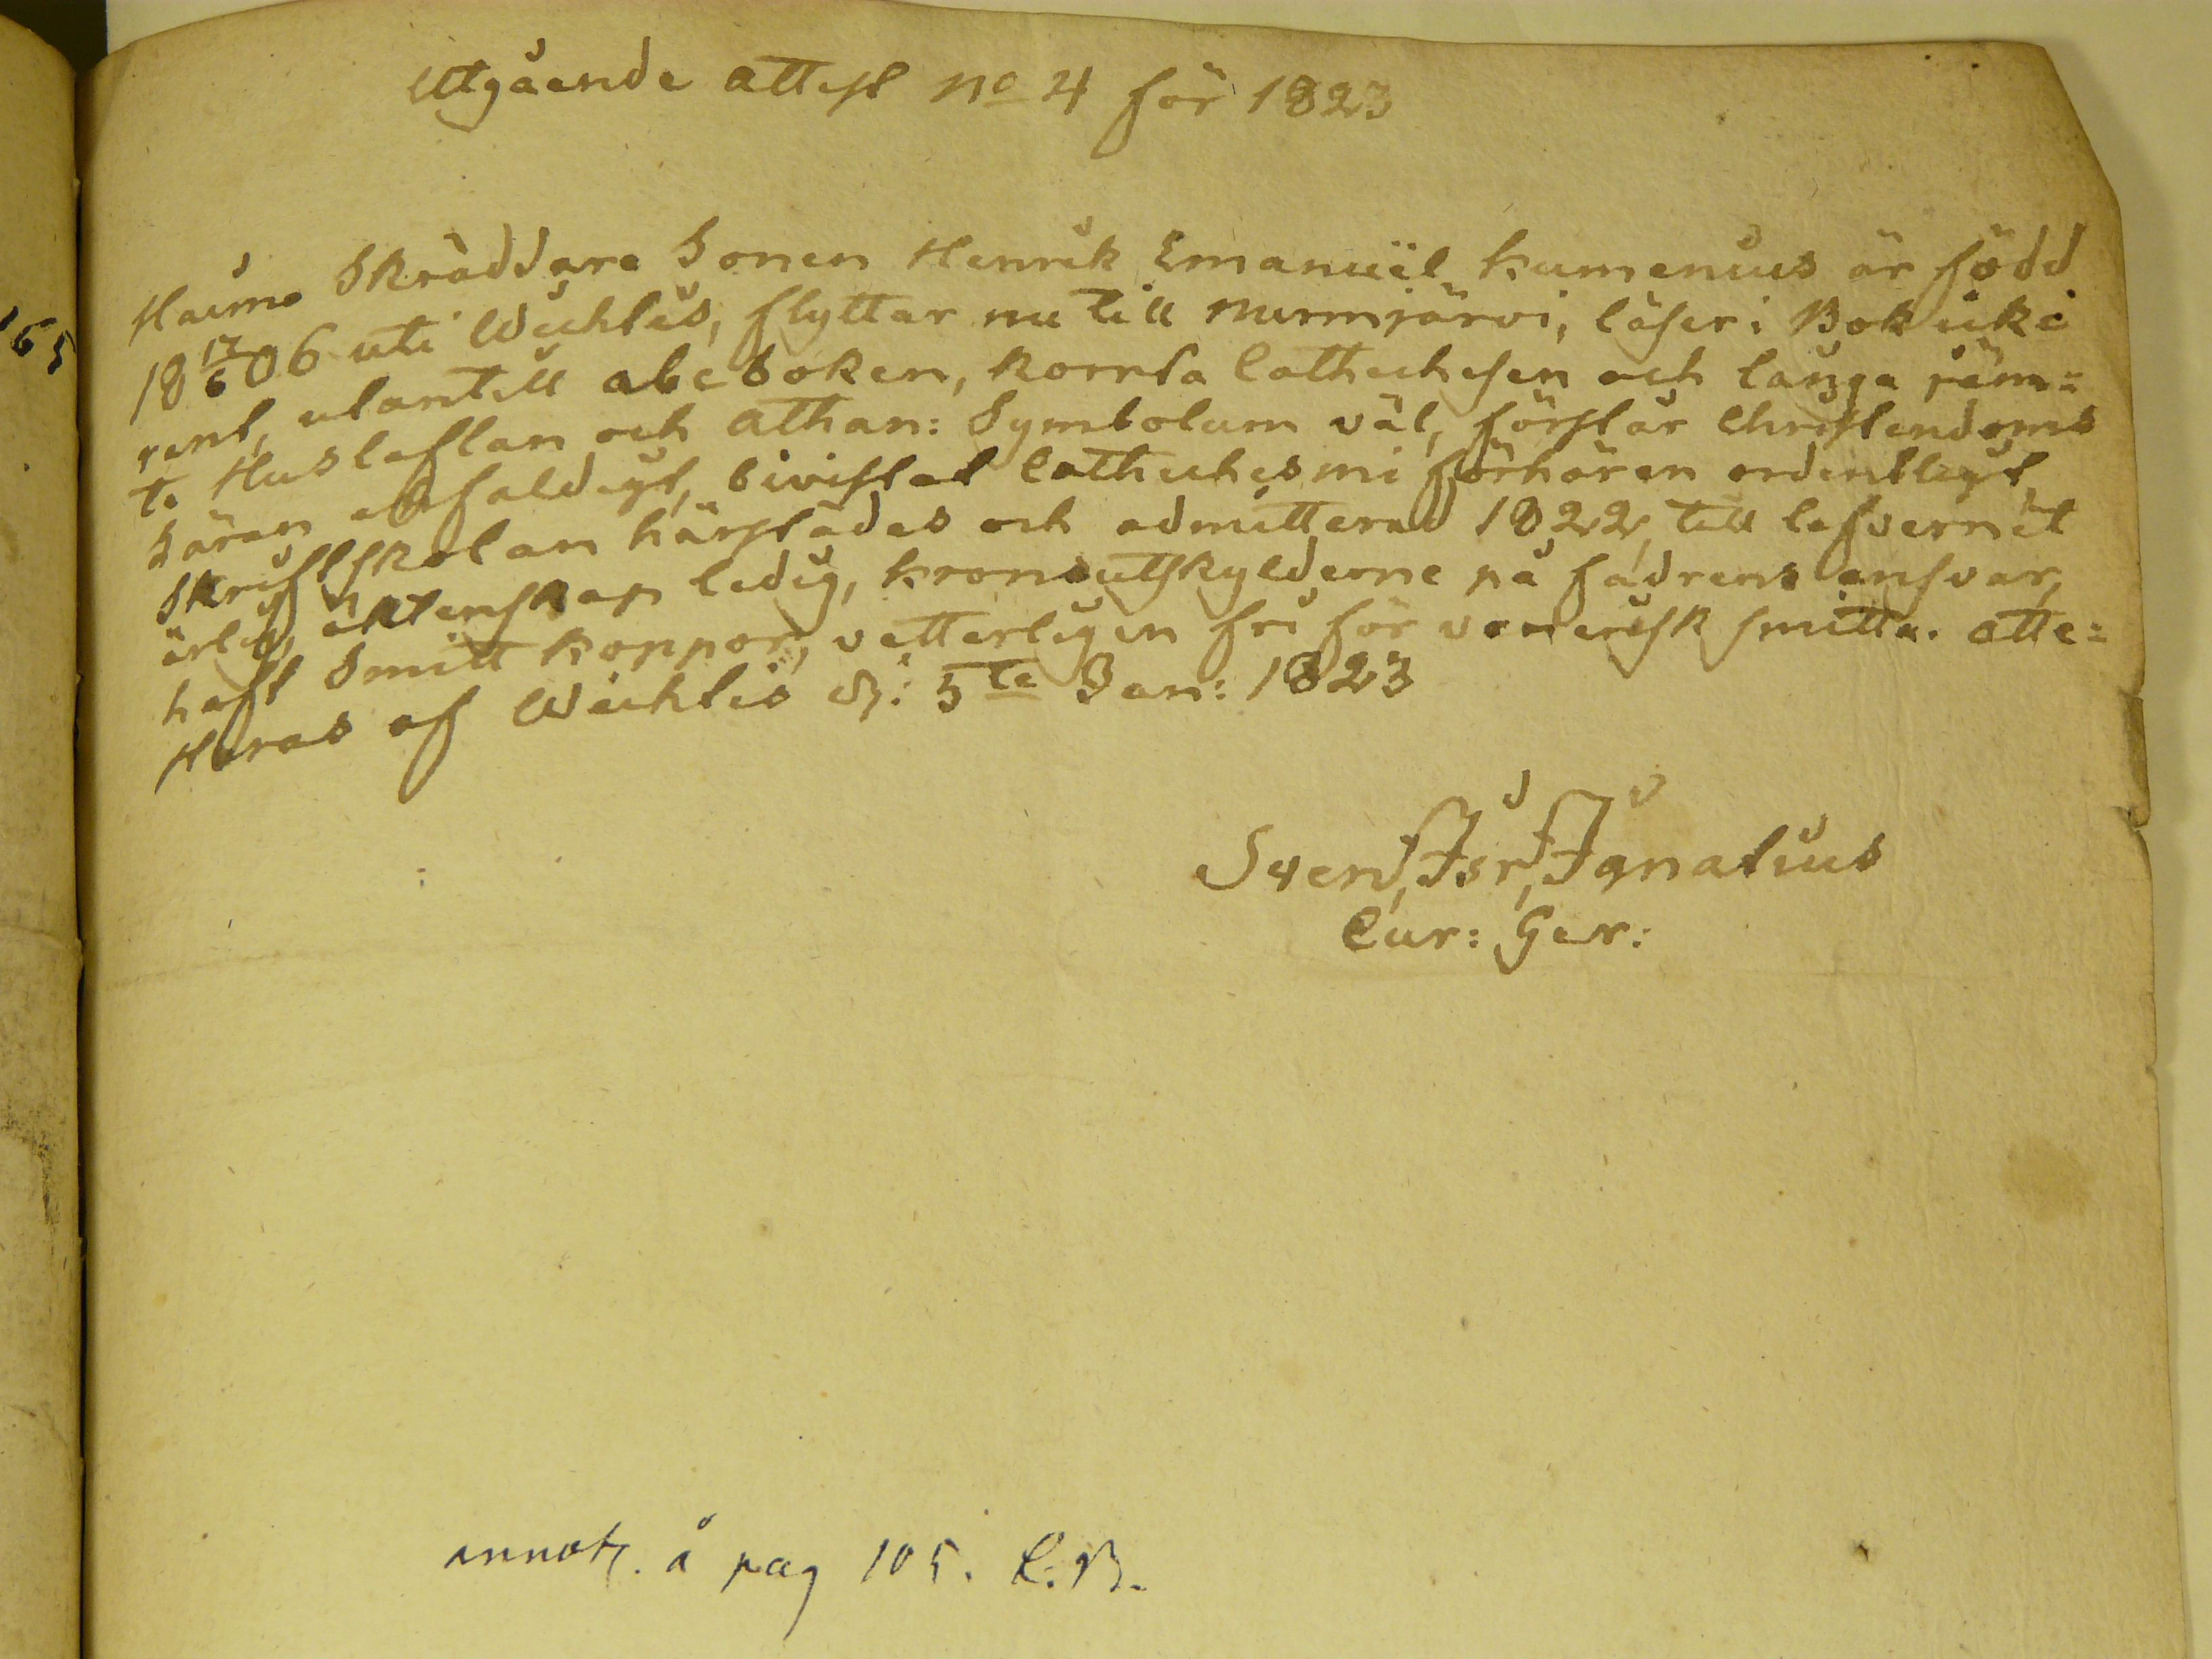 Utgående attest No 4 för 1823
Skräddare Sonen Henrik Emanuël Kumenius är född
18 17/6 06 uti Wichtis, flyttar nu till Nurmijärvi, läser i Bok icke
rent, utantill abc boken, korrta Cathechesen och långa jäm=
te Hustaflan och Athan: Symbolum väl, förstår Christendoms
läran enfaldigt, bivistat Cathechismi förhören ordentligt,
Skriftskolan härstädes och admitterad 1822, till lefvernet
ärlig, äktenskap ledig, kronoutskylderne på fadrens ansvar,
haft Smittkoppor, vetterligen fri för venerisk smitta. Atte=
steras af Wichtis d: 5te Jan: 1823
Sven Isr Ignatius
Cur: Ger:
annot. å pag 105. R.B.
165